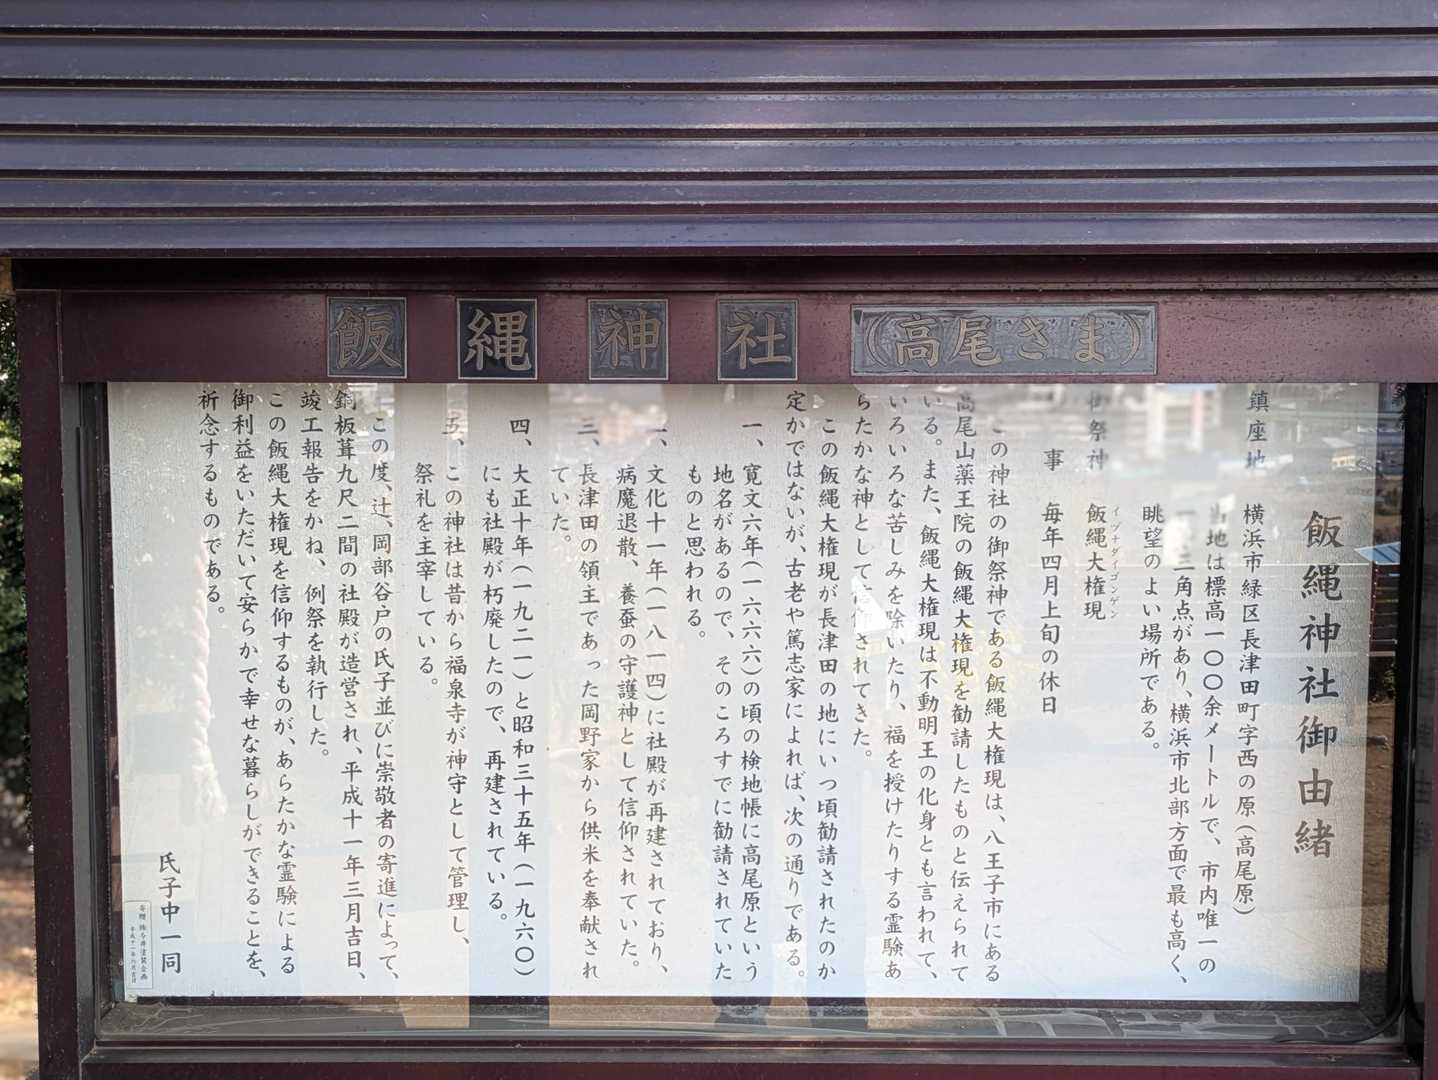 飯縄神社(高尾さま)
飯縄神社御由緒
鎮座地　横浜市緑区長津田町字西の原(高尾原)
当地は標高一〇〇余メートルで、市内唯一の
一、三角点があり、横浜市北部方面で最も高く、
眺望のよい場所である。
御祭神　飯縄大権現
イヅナダイゴンゲン
事　毎年四月上旬の休日
この神社の御祭神である飯縄大権現は、八王子市にある
高尾山薬王院の飯縄大権現を勧請したものと伝えられて
いる。また、飯縄大権現は不動明王の化身とも言われて、
いろいろな苦しみを除いたり、福を授けたりする霊験あ
らたかな神として信仰されてきた。
この飯縄大権現が長津田の地にいつ頃勧請されたのか
定かではないが、古老や篤志家によれば、次の通りである。
一、寛文六年(一六六六)の頃の検地帳に高尾原という
地名があるので、そのころすでに勧請されていた
ものと思われる。
、文化十一年(一八一四)に社殿が再建されており、
病魔退散、養蚕の守護神として信仰されていた。
三、長津田の領主であった岡野家から供米を奉献され
ていた。
四、大正十年(一九二一)と昭和三十五年(一九六〇)
にも社殿が朽廃したので、再建されている。
五、この神社は昔から福泉寺が神守として管理し、
祭礼を主宰している。
この度、辻、岡部谷戸の氏子並びに崇敬者の寄進によって、
銅板葺九尺二間の社殿が造営され、平成十一年三月吉日、
竣工報告をかね、例祭を執行した。
この飯縄大権現を信仰するものが、あらたかな霊験による
御利益をいただいて安らかで幸せな暮らしができることを、
祈念するものである。
氏子中一同
寄贈 ㈱今井塗装企画
平成十一年六月吉日